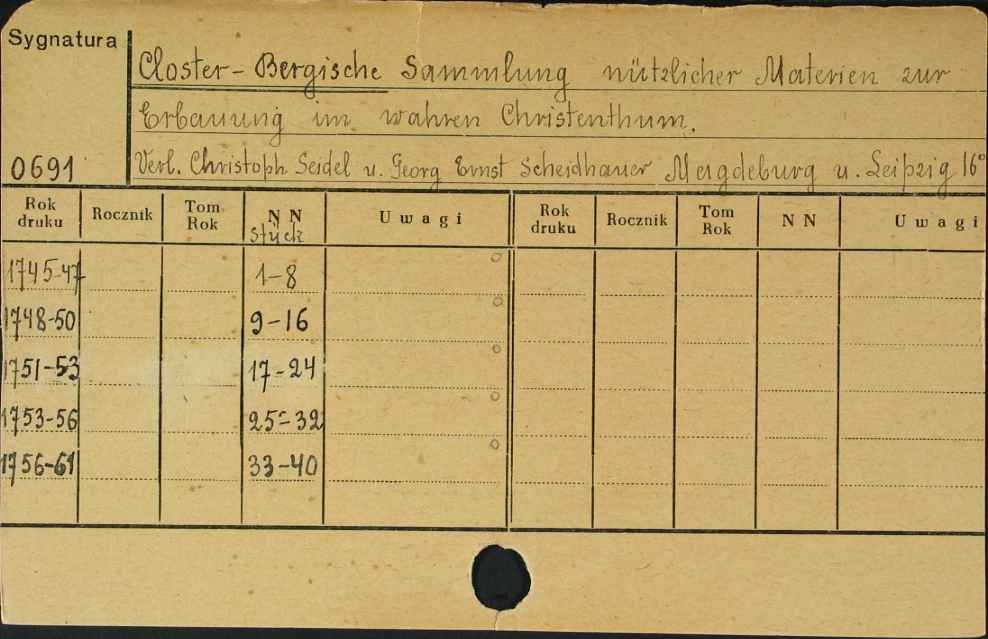 Sygnatura
Closter-Bergische Sammlung nützlicher Materien zur
Erbauung im wahren Christenthum.
0691
Verl. Christoph Seidel u. Georg Ernst Scheidhauer Magdeburg u. Leipzig 16°
Rok druku Rocznik Tom Rok N N Stück Uwagi Rok druku Rocznik Tom Rok N N Uwagi
1745-47 1-8
1748-50 9-16
1751-53 17-24
1753-56 25-32
1756-61 33-40